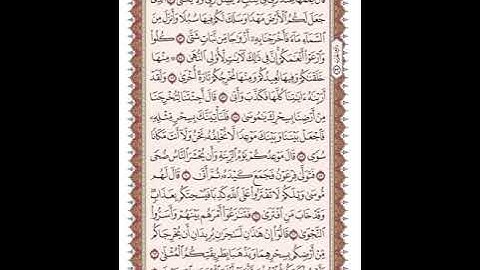 جَعَلَ لَكُمُ ٱلْأَرْضَ مَهْدًا وَسَلَكَ لَكُمْ فِيهَا سُبُلًا وَأَنزَلَ مِنَ
ٱلسَّمَآءِ مَآءً فَأَخْرَجْنَا بِهِۦٓ أَزْوَٰجًا مِّن نَّبَاتٍ شَتَّىٰ ۝ كُلُوا۟
وَٱرْعَوْا۟ أَنْعَٰمَكُمْ إِنَّ فِى ذَٰلِكَ لَءَايَٰتٍ لِّأُو۟لِى ٱلنُّهَىٰ ۝ مِنْهَا
خَلَقْنَٰكُمْ وَفِيهَا نُعِيدُكُمْ وَمِنْهَا نُخْرِجُكُمْ تَارَةً أُخْرَىٰ ۝ وَلَقَدْ
أَرَيْنَٰهُ ءَايَٰتِنَا كُلَّهَا فَكَذَّبَ وَأَبَىٰ ۝ قَالَ أَجِئْتَنَا لِتُخْرِجَنَا
مِنْ أَرْضِنَا بِسِحْرِكَ يَٰمُوسَىٰ ۝ فَلَنَأْتِيَنَّكَ بِسِحْرٍ مِّثْلِهِۦ
فَٱجْعَلْ بَيْنَنَا وَبَيْنَكَ مَوْعِدًا لَّا نُخْلِفُهُۥ نَحْنُ وَلَآ أَنتَ مَكَانًا
سُوًى ۝ قَالَ مَوْعِدُكُمْ يَوْمُ ٱلزِّينَةِ وَأَن يُحْشَرَ ٱلنَّاسُ ضُحًى
۝ فَتَوَلَّىٰ فِرْعَوْنُ فَجَمَعَ كَيْدَهُۥ ثُمَّ أَتَىٰ ۝ قَالَ لَهُم
مُّوسَىٰ وَيْلَكُمْ لَا تَفْتَرُوا۟ عَلَى ٱللَّهِ كَذِبًا فَيُسْحِتَكُم بِعَذَابٍ
وَقَدْ خَابَ مَنِ ٱفْتَرَىٰ ۝ فَتَنَٰزَعُوٓا۟ أَمْرَهُم بَيْنَهُمْ وَأَسَرُّوا۟
ٱلنَّجْوَىٰ ۝ قَالُوٓا۟ إِنْ هَٰذَٰنِ لَسَٰحِرَٰنِ يُرِيدَانِ أَن يُخْرِجَاكُم
مِّنْ أَرْضِكُم بِسِحْرِهِمَا وَيَذْهَبَا بِطَرِيقَتِكُمُ ٱلْمُثْلَىٰ ۝